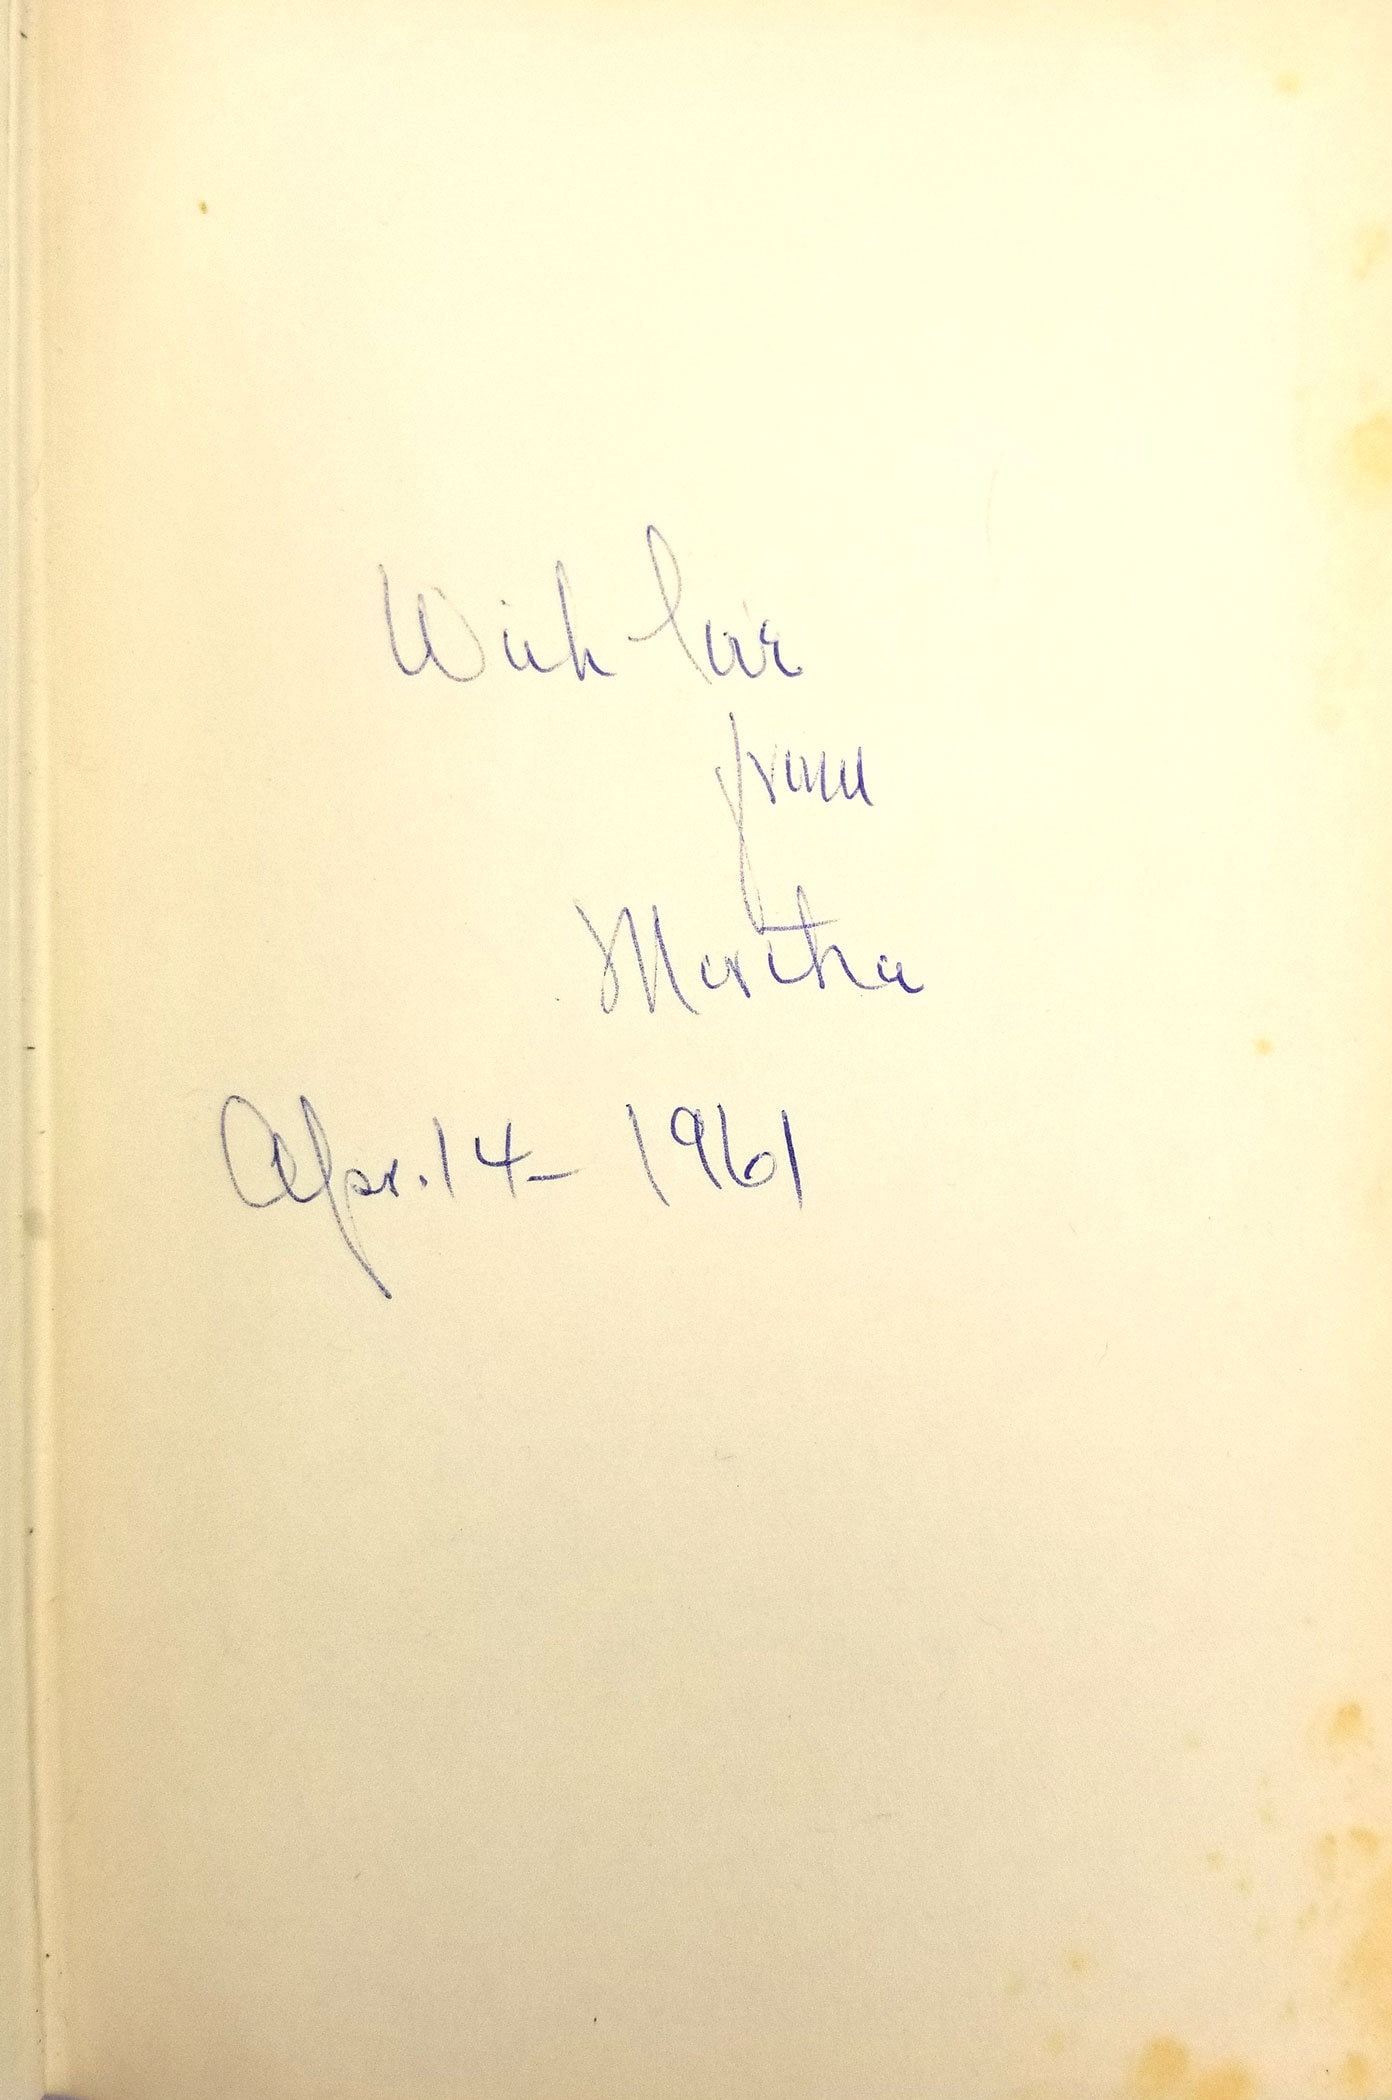 With love
from
Martha
Apr. 14 - 1961